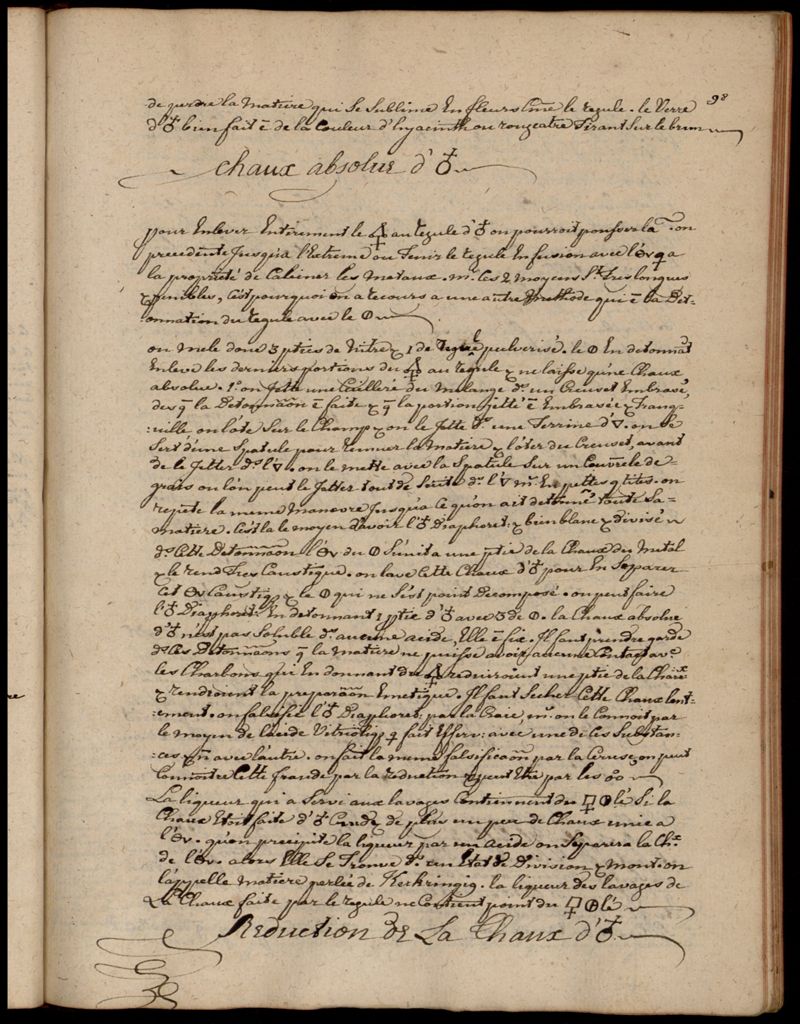 98
de perdre la matiere qui se sublime En fleurs Cme le regule. le Verre
d'♁ bien fait ē de la Couleur d'hyacinth ou rougeatre Tirant Sur le brun
chaux absolue d'♁
pour Enlever Entierement le 🜍 au regule d'♁ on pourroit pousser la on
precedente Jusqu'a l'Extreme ou Tenir le regule En fusion avec l' a
la propriété de Calciner les metaux. m. les 2 moyens St. tres longues
& penibles, C'est pourquoi on a recours a une autre methode qui ē la Det-
onnation du regule avec le ⦶
on mele donc 3 pties de Nitre & 1 de regule pulverisé. le ⦶ En detonnat
Enleve les derniers portions du 🜍 au regule & ne laisse qu'une Chaux
absolue. 1°. on Jette une Cuillere du Melange ds. un Creuset Embrasé,
des q̄ la Detonnaōn ē faite & q̄ la portion Jetté ē Embrasée & Tranq-
:uille on l'ote Sur le Champ & on le Jette ds. une Terrine d'🜄. on Se
Sert d'une Spatule pour remuer la Matiere & l'oter du Creuset, avant
de le Jetter ds. l'🜄. on le mette avec la Spatule Sur un Couvercle de
grais ou l'on peut le Jetter tout de Suite ds. l'🜄 m. En pettes qtites. on
repete la meme Manoevre Jusqu'a Ce qu'on ait detonné toute Sa
matiere. C'est la le moyen d'avoir l'♁ Diaphoret: & bien blanc & divisé
ds. Cette Detonnaōn l' du ⦶ S'unit a une ptie de la Chaux du Metal
& le rend Tres Caustique. on lave Cette Chaux d'♁ pour En Separer
Cet Caustiq & le ⦶ qui ne S'est point Decomposé. on peut faire
l'♁ Diaphoret. En detonnant 1 ptie d'♁ avec 3 de ⦶. la Chaux absolue
d'♁ n'est pas Soluble ds. aucune acide, Elle ē fix. Il faut prendre garde
ds. Ces Detonnaōns q̄ la matiere ne puisse avoir aucune Contact av.
les Charbons qui En donnant du reduiroient une ptie de la Chaux
& rendroient la preparaōn Emetique. Il faut Secher Cette Chaux lent-
:ement. on falsifie l'♁ Diaphoret: par la Craie, m. on le Connoit par
le moyen de l'acide Vitrioliq q̄ fait Efferv: avec une de Ces Substan-
:ces & avec l'autre. on fait la meme falsificaōn par la Ceruse, on peut
Connoitre Cette fraude par la reduction & peut Etre par les
La liqueur qui a Servi aux lavages Contiennent du 🜍 Si la
Chaux Etoit faite d'♁ Crud & de plus un peu de Chaux unie a
l'. qu'on precipite la liqueur par un acide on Separera la Chx.
de l'. alors Elle Se Trouve ds. un Etat de Division & mont on
l'appelle matiere perlée de Kerkringig. la liqueur des lavages de
La Chaux faite par le regule ne Contient point du
Reduction de La Chaux d'♁